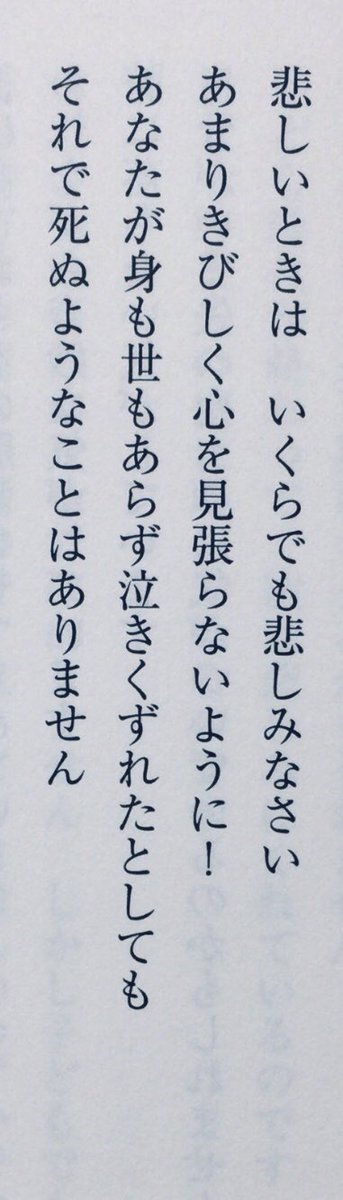 悲しいときは　いくらでも悲しみなさい
あまりきびしく心を見張らないように！
あなたが身も世もあらず泣きくずれたとしても
それで死ぬようなことはありません